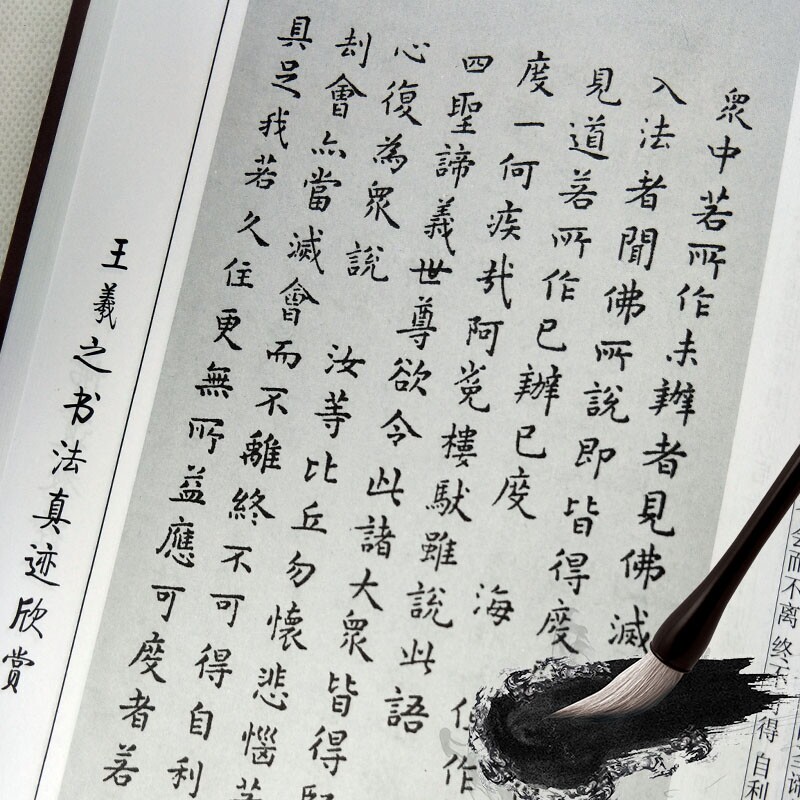 衆中若所作未辦者見佛滅
入法者聞佛所說即皆得度
見道若所作已辦已度海
度一何疾哉阿㝹樓馱雖說此語
四聖諦義世尊欲令此諸大衆皆得
心復為衆說 汝等比丘勿懷悲惱若
刦會亦當滅會而不離終不可得自利
具足我若久住更無所益應可度者若
王羲之书法真迹欣赏
而不离 终 得 自利